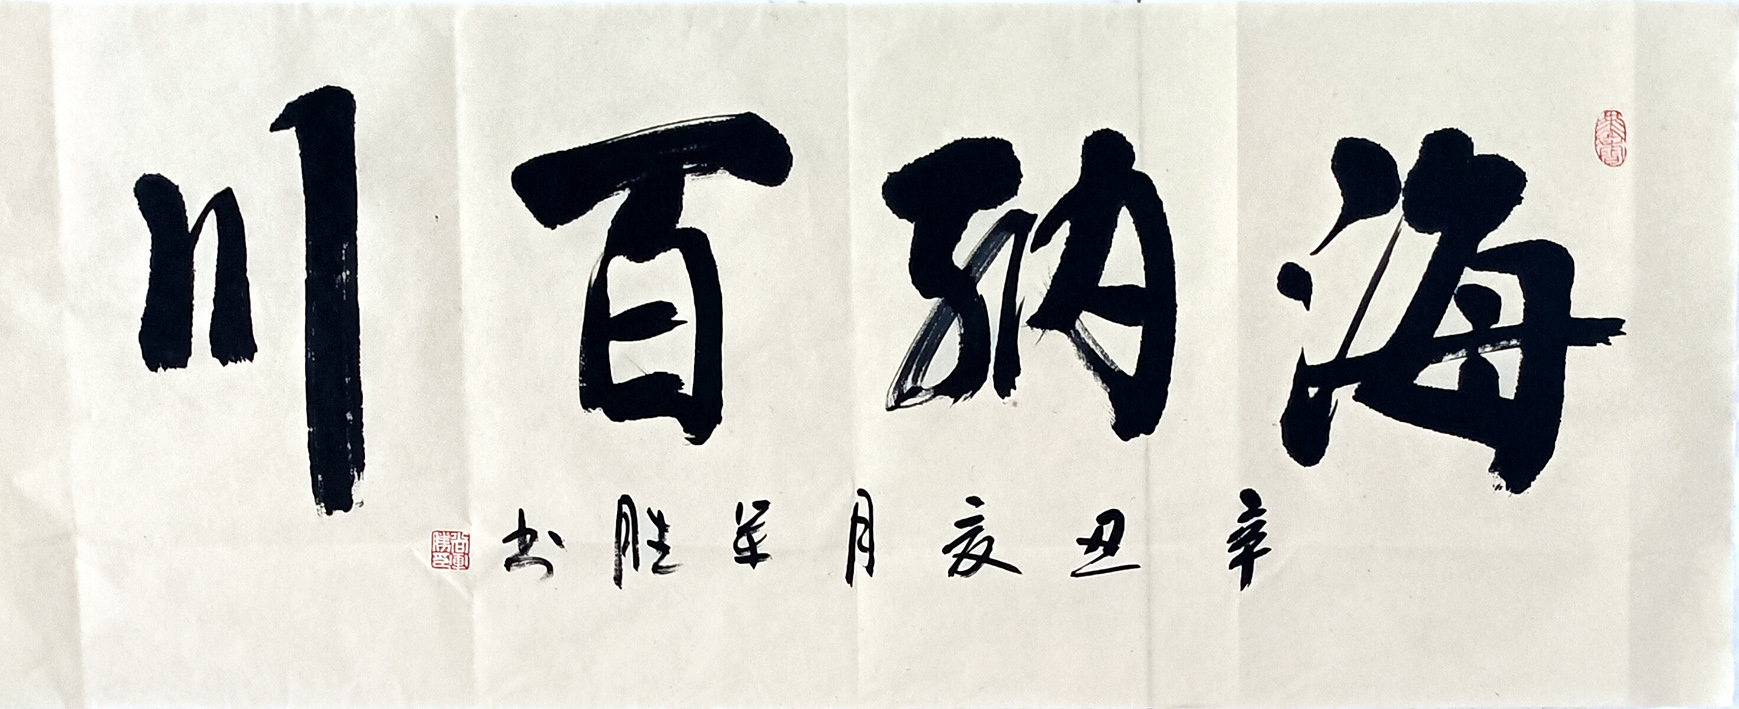 海纳百川
辛丑亥月军胜书